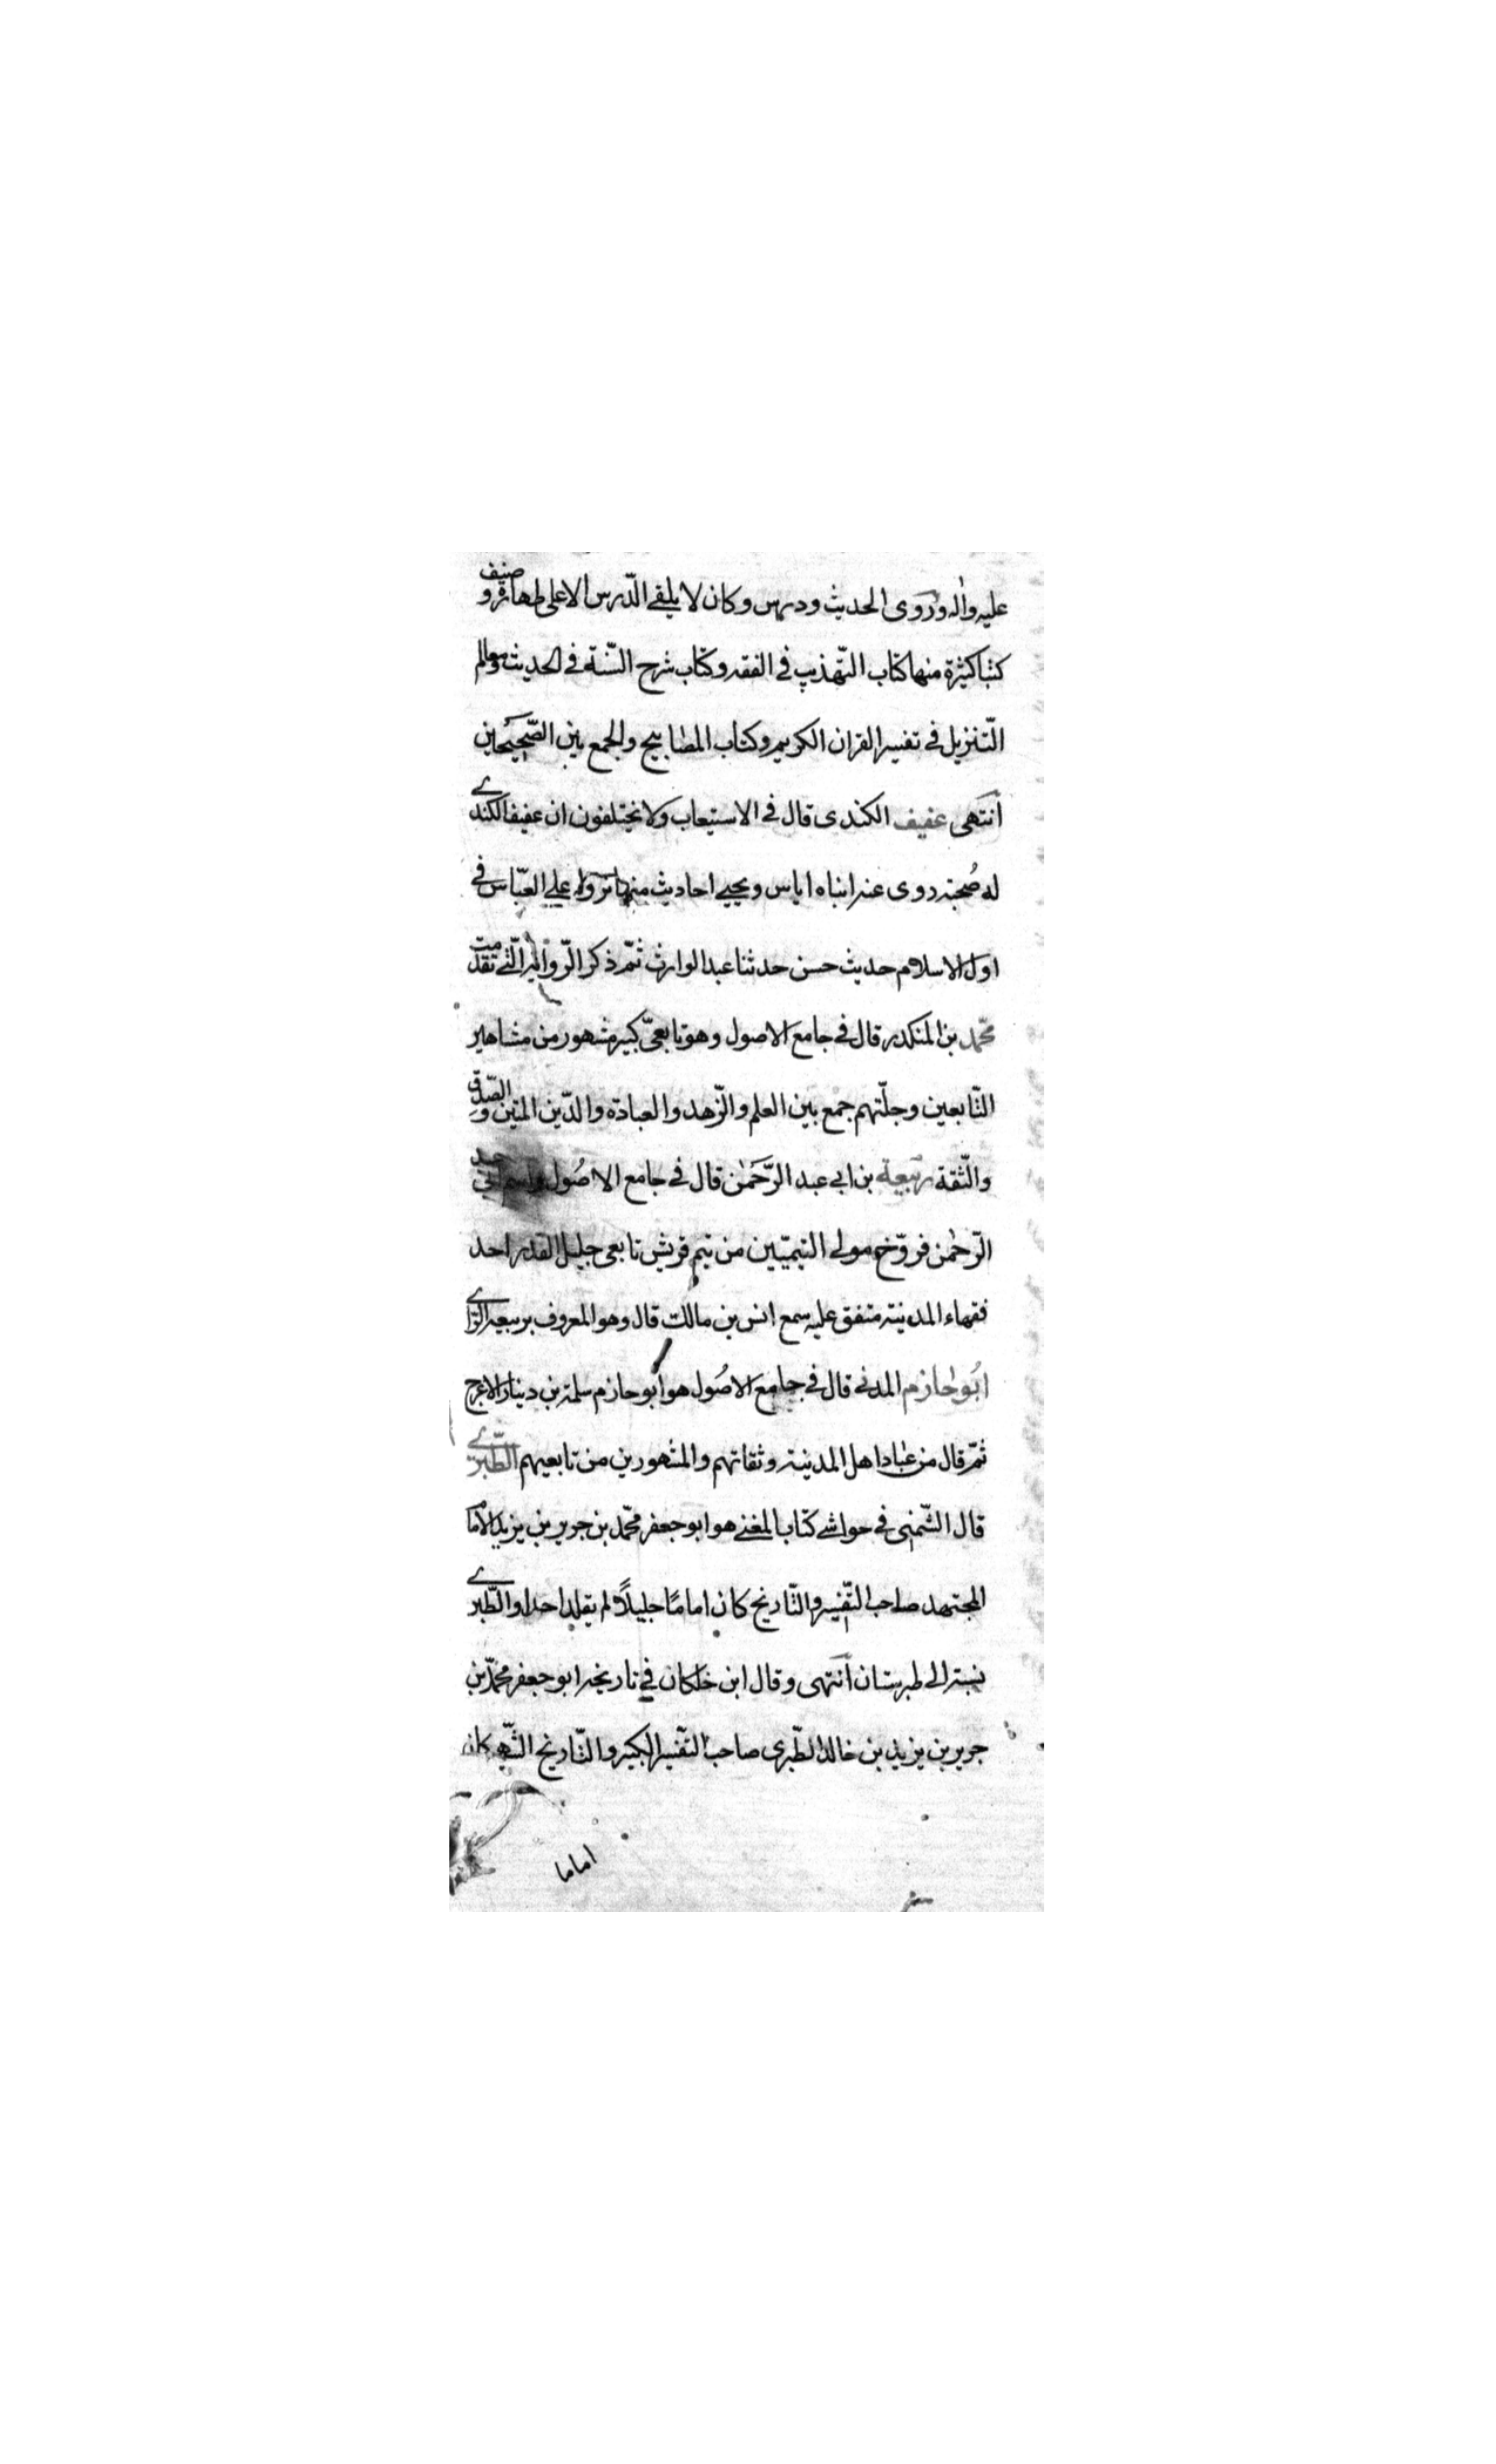 عليه واله وروى الحديث ودرس وكان لا يلقى الدّرس الا على طهارة و صنف
كتبا كثيرة منها كتاب التّهذيب فى الفقه وكتاب شرح السّنّة فى الحديث ومعالم
التّنزيل فى تفسير القران الكريم وكتاب المصابيح والجمع بين الصّحيحين
انتهى عفيف الكندى قال فى الاستيعاب ولا يختلفون ان عفيفا الكندى
له صُحبة روى عنه ابناه اياس ويحيى احاديث منها نزوله على العبّاس فى
اول الاسلام حديث حسن حدثنا عبد الوارث ثمّ ذكر الرّواية الّتى تقدمت
محمّد بن المنكدر قال فى جامع الاصول وهو تابعىّ كبير مشهور من مشاهير
التّابعين وجلّتهم جمع بين العلم والزّهد والعبادة والدّين المتين والصّدق
والثّقة ربيعة بن ابى عبد الرّحمن قال فى جامع الاصُول واسم ابى عبد
الرّحمن فروّخ مولى التيميّين من تيم قريش تابعى جليل القدر احد
فقهاء المدينة متفق عليه سمع انس بن مالك قال وهو المعروف بربيعة الرّاى
ابُو حازم المدنى قال فى جامع الاصُول هو ابو حازم سلمة بن دينار الاعرج
ثمّ قال من عباد اهل المدينة وثقاتهم والمشهورين من تابعيهم الطّبرى
قال الشّمنى فى حواشى كتاب المغنى هو ابو جعفر محمّد بن جرير بن يزيد الامام
المجتهد صاحب التّفسير والتّاريخ كان امامًا جليلاً لم يقلد احدا والطّبرى
نسبة الى طبرستان انتهى وقال ابن خلكان فى تاريخه ابو جعفر محمّد بن
جرير بن يزيد بن خالد الطّبرى صاحب التّفسير الكبير والتّاريخ الشّهير كان
اماما